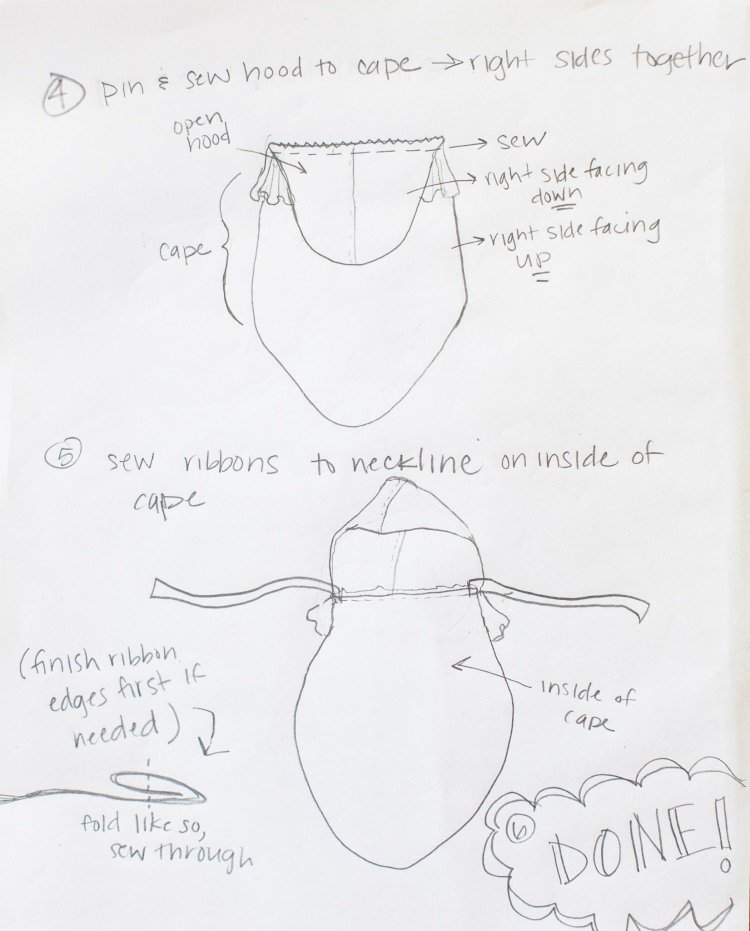 4 pin & sew hood to cape → right sides together
open
hood
→ sew
→ right side facing
down
cape
→ right side facing
up
5 sew ribbons to neckline on inside of
cape
(finish ribbon
edges first if
needed)
inside of
cape
fold like so,
sew through
6 DONE!